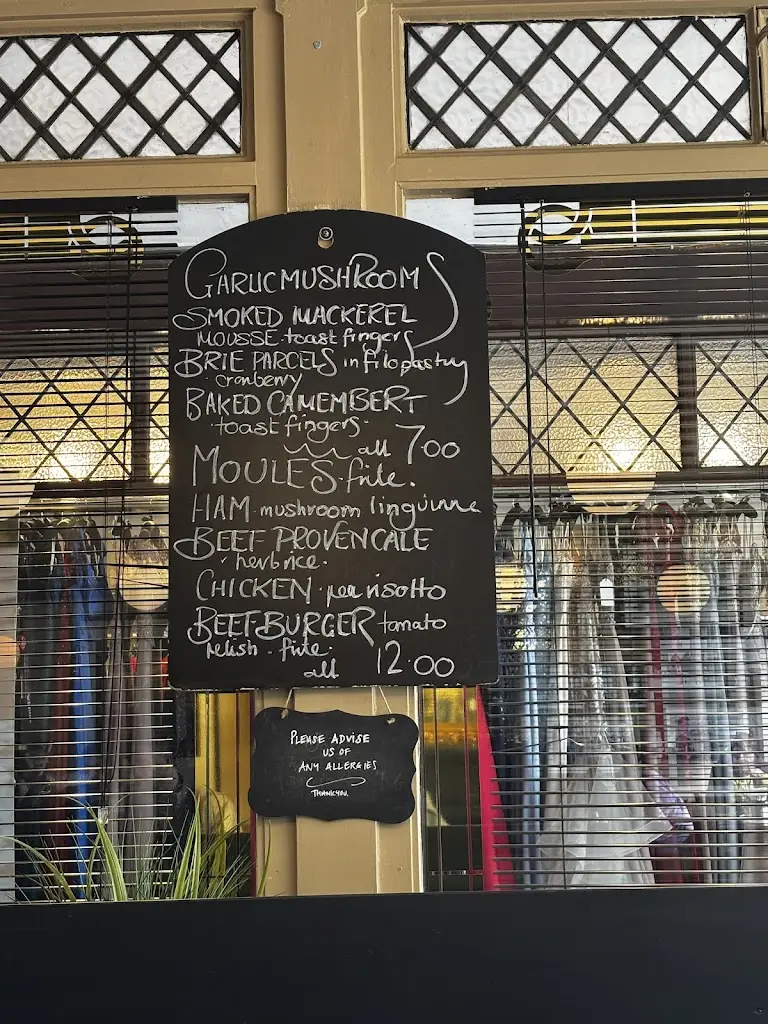 GARLIC MUSHROOMS
SMOKED MACKEREL
MOUSSE toast fingers
BRIE PARCELS in filo pastry
cranberry
BAKED CAMEMBERT
toast fingers
all 7.00
MOULES frite.
HAM mushroom linguinne
BEEF PROVENCALE
herb rice.
CHICKEN pea risotto
BEEFBURGER tomato
relish - frite.
all 12.00
PLEASE ADVISE
US OF
ANY ALLERGIES
THANKYOU